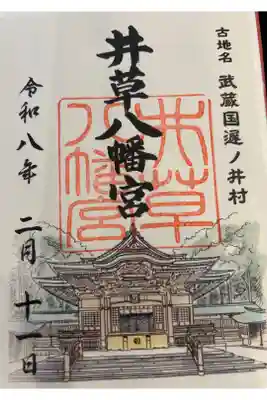 古地名 武蔵国遅ノ井村
井草八幡宮
井草
八幡宮
令和八年 二月 十一日